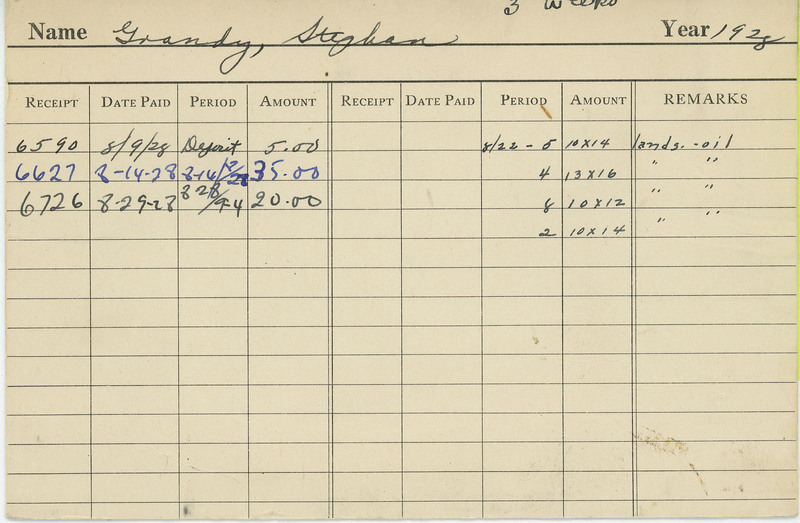 3 Weeks
Name Grandy, Stephan Year 1928
RECEIPT DATE PAID PERIOD AMOUNT RECEIPT DATE PAID PERIOD AMOUNT REMARKS
6590 8/9/28 Deposit 5.00 8/22 - 5 10x14 lands. - oil
6627 8-14-28 8-14/ 35.00 4 13x16 " "
6726 8-29-28 8-28/9-4 20.00 8 10x12 " "
2 10x14 " "